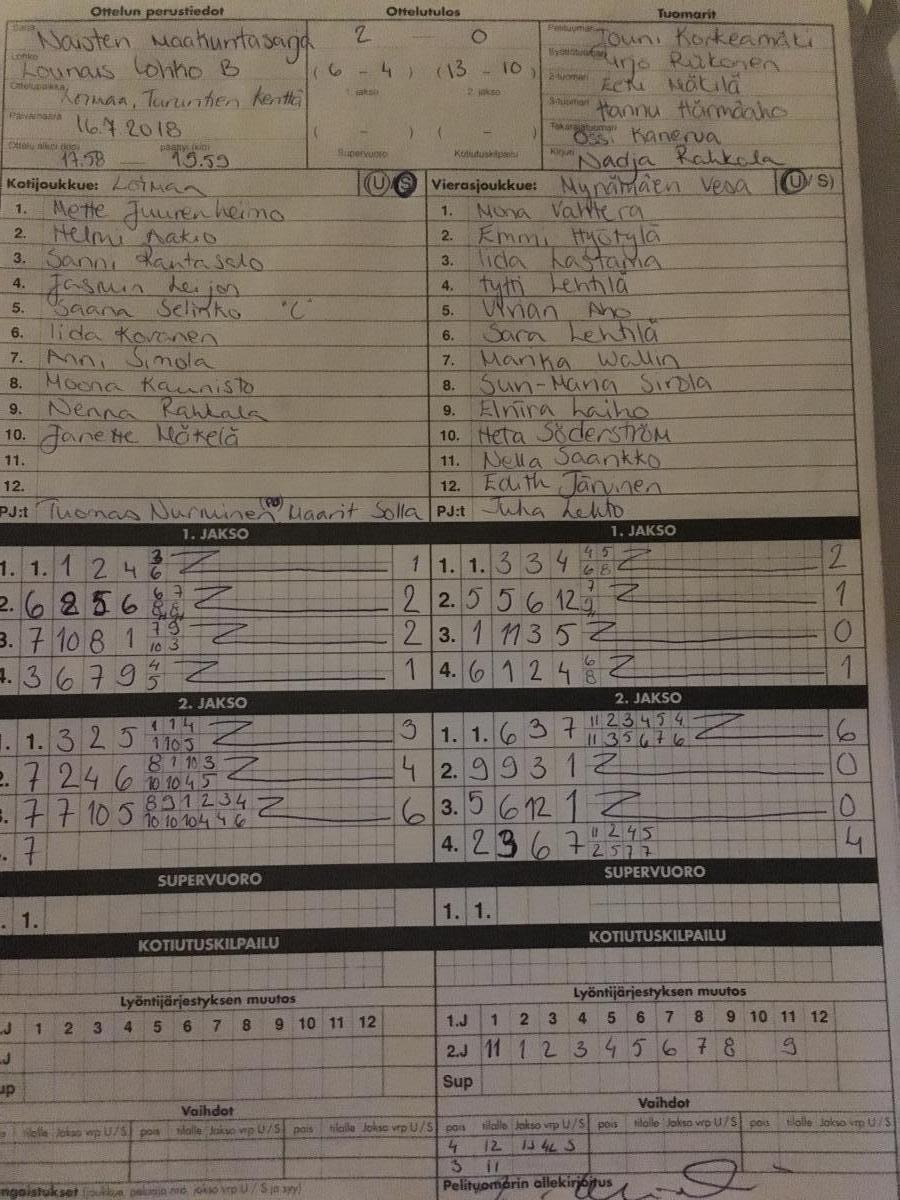 Ottelun perustiedot Ottelutulos Tuomarit
Sarja Naisten Maakuntasarja
Lohko Lounais Lohko B
Ottelupaikka Loimaa, Turuntien kenttä
Päivämäärä 16.7 2018
Ottelu alkoi (klo) 17.58 päättyi (klo) 19.59
2 - 0
(6 - 4) (13 - 10)
1. jakso 2. jakso
( - ) ( - )
Supervuoro Kotiutuskilpailu
Pelituomari Jouni Korkeamäki
Syöttötuomari
2-tuomari Mäkilä
3-tuomari Hannu Härmäaho
Takarajatuomari Ossi Kanerva
Kirjuri Nadja Rahkola
Kotijoukkue: Loimaa (U/S)
1. Mette Juurenheimo
2. Helmi Aakio
3. Sanni Rantasalo
4. Jasmin Leijon
5. Saana Selinko "C"
6. Iida Kovanen
7. Anni Simola
8. Moona Kaunisto
9. Nenna Rahkala
10. Janette Mäkelä
11.
12.
PJ:t Tuomas Nurminen (PJ) Maarit Solla
Vierasjoukkue: Mynämäen Vesa (U/S)
1. Mona Vahtera
2. Emmi Hyötylä
3. Iida
4. Tytti Lehtilä
5. Aho
6. Sara Lehtilä
7. Marika Wallin
8. Sun-Maria Sirola
9. Elniira Laiho
10. Heta Söderström
11. Nella Saarikko
12. Edith Järvinen
PJ:t Juha Lehto
1. JAKSO
1. 1. 1 2 4 3 6 1
2. 6 2 5 6 6 7 8 8 2
3. 7 10 8 1 7 9 10 3 2
4. 3 6 7 9 4 5 1
2. JAKSO
1. 1. 3 2 5 1 1 4 1 10 5 3
2. 7 2 4 6 8 1 10 3 10 10 4 5 4
3. 7 7 10 5 8 9 1 2 3 4 10 10 10 4 4 6 6
. 7
SUPERVUORO
. 1.
KOTIUTUSKILPAILU
1. JAKSO
1. 1. 3 3 4 4 5 6 8 2
2. 5 5 6 12 7 9 1
3. 1 11 3 5 0
4. 6 1 2 4 6 8 1
2. JAKSO
1. 1. 6 3 7 11 2 3 4 5 4 11 3 5 6 7 6 6
2. 9 9 3 1 0
3. 5 6 12 1 0
4. 2 3 6 7 11 2 4 5 2 5 7 7 4
SUPERVUORO
1. 1.
KOTIUTUSKILPAILU
Lyöntijärjestyksen muutos
.J 1 2 3 4 5 6 7 8 9 10 11 12
.J
up
Vaihdot
tilalle Jakso vrp U/S pois tilalle Jakso vrp U/S pois tilalle Jakso vrp U/S
ngaistukset (joukkue, pelaajan nro, jakso vrp U / S ja syy)
Lyöntijärjestyksen muutos
1.J 1 2 3 4 5 6 7 8 9 10 11 12
2.J 11 1 2 3 4 5 6 7 8 9
Sup
Vaihdot
pois tilalle Jakso vrp U/S pois tilalle Jakso vrp U/S pois tilalle Jakso vrp U/S
4 12 1J 4L S
3 11
Pelituomarin allekirjoitus